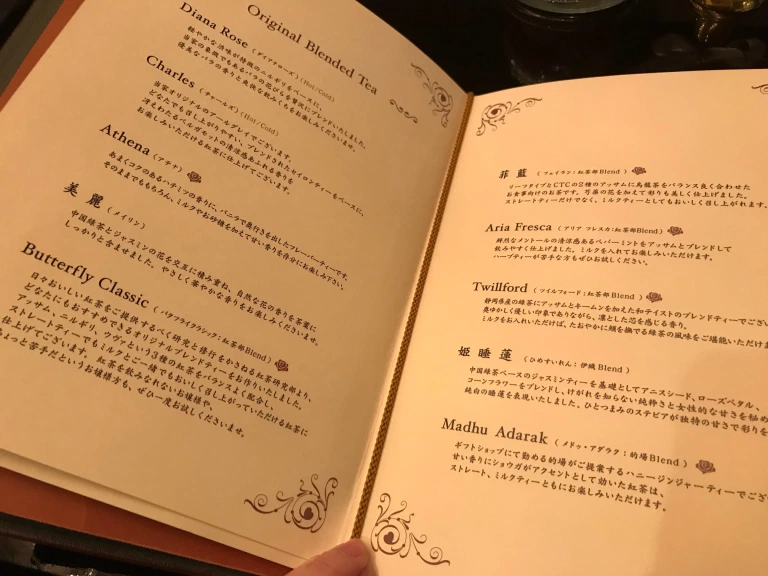 Original Blended Tea
Diana Rose (ダイアナローズ)(Hot/Cold)
軽やかな渋味が特徴のニルギリをベースに、
当家の象徴でもあるバラの花びらを贅沢にブレンドいたしました。
優美なバラの香りと爽快な飲みくちをお楽しみくださいませ。
Charles (チャールズ)(Hot/Cold)
当家オリジナルのアールグレイでございます。
どなたでも召し上がりやすい、ブレンドされたセイロンティーをベースに、
冴えわたるベルガモットの清涼感あふれる香りを
お楽しみいただける紅茶に仕上げてございます。
Athena (アテナ)
あまくコクのあるハチミツの香りに、バニラで奥行きを出したフレーバーティーです。
そのままでももちろん、ミルクやお砂糖を加えてせい香りを存分にお楽しみ下さい。
美麗 (メイリン)
中国緑茶とジャスミンの花を交互に積み重ね、自然な花の香りを茶葉に
しっかりと含ませました。やさしく華やかな香りをお楽しみくださいませ。
Butterfly Classic (バタフライクラシック:紅茶部Blend)
日々おいしい紅茶をご提供するべく研究と修行をかさねる紅茶研究部より、
どなたにもおすすめできるオリジナルブレンドティーをお作りいたしました。
アッサム、ニルギリ、ヌワラという3種の紅茶をバランスよく配合し、
ストレートティーでもミルクとご一緒でもおいしく召し上がっていただける紅茶に
仕上げてございます。紅茶を飲みなれないお嬢様や、
ちょっと苦手だというお嬢様方も、ぜひ一度お試しくださいませ。
菲藍 (フェイラン:紅茶部Blend)
リーフタイプとCTCの2種のアッサムに烏龍茶をバランス良く合わせた
お食事向けのお茶です。芍薬の花を加えて彩りも美しく仕上げました。
ストレートティーだけでなく、ミルクティーとしてもおいしく召し上がれます。
Aria Fresca (アリア フレスカ:紅茶部Blend)
鮮烈なメントールの清涼感あるペパーミントをアッサムとブレンドして
飲みやすく仕上げました。ミルクを入れてお召しいただけます。
ハーブティーが苦手な方もぜひお試しください。
Twillford (ツイルフォード:紅茶部Blend)
静岡県産の緑茶にアッサムとキームンを加えた和テイストのブレンドティーでござい
奥ゆかしく優しい印象でありながら、凛とした芯を感じる香り。
ミルクをお入れいただけば、たおやかに頬を撫でる緑茶の風味をご堪能いただけま
姫睡蓮 (ひめすいれん:伊織Blend)
中国緑茶ベースのジャスミンティーを基礎としてアニスシード、ローズペタル、
コーンフラワーをブレンドし、けがれを知らない純粋さと女性的な甘さを秘め
純白の睡蓮を表現いたしました。ひとつまみのステビアが独特の甘さで彩りを
Madhu Adarak (メドゥ・アダラク:的場Blend)
ギフトショップにて勤める的場がご提案するハニージンジャーティーでござ
甘い香りにショウガがアクセントとして効いた紅茶は、
ストレート、ミルクティーともにお楽しみいただけます。